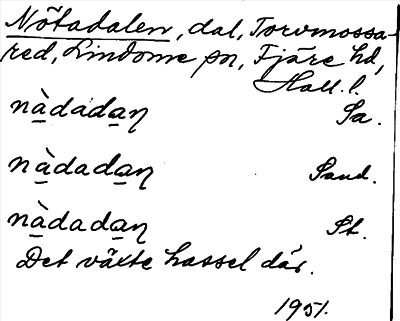 Nötadalen, dal, Torvmossa-
red, Lindome sn, Fjäre hd,
Hall. l.
nàdadaɳ Sa.
nàdadaɳ Sand.
nàdadaɳ St.
Det växte hassel där.
1951.